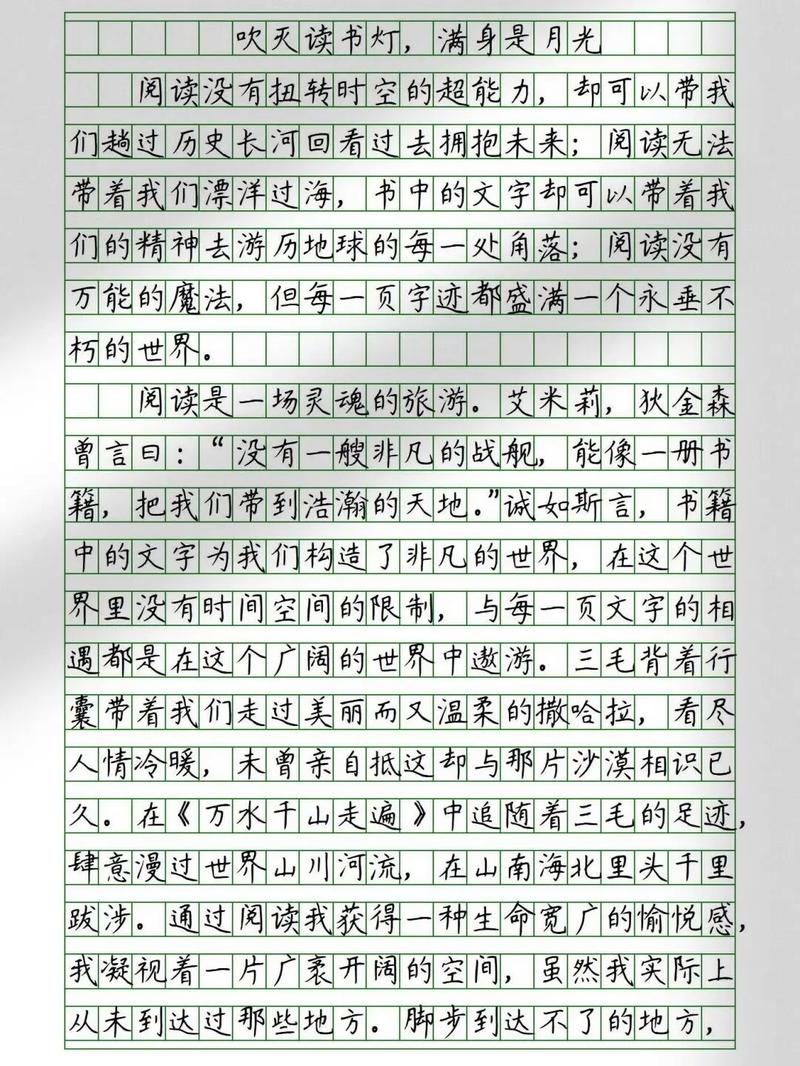 吹灭读书灯，满身是月光
阅读没有扭转时空的超能力，却可以带我
们趟过历史长河回看过去拥抱未来；阅读无法
带着我们漂洋过海，书中的文字却可以带着我
们的精神去游历地球的每一处角落；阅读没有
万能的魔法，但每一页字迹都盛满一个永垂不
朽的世界。
阅读是一场灵魂的旅游。艾米莉，狄金森
曾言曰：“没有一艘非凡的战舰，能像一册书
籍，把我们带到浩瀚的天地。”诚如斯言，书籍
中的文字为我们构造了非凡的世界，在这个世
界里没有时间空间的限制，与每一页文字的相
遇都是在这个广阔的世界中遨游。三毛背着行
囊带着我们走过美丽而又温柔的撒哈拉，看尽
人情冷暖，未曾亲自抵这却与那片沙漠相识已
久。在《万水千山走遍》中追随着三毛的足迹，
肆意漫过世界山川河流，在山南海北里头千里
跋涉。通过阅读我获得一种生命宽广的愉悦感，
我凝视着一片广袤开阔的空间，虽然我实际上
从未到达过那些地方。脚步到达不了的地方，